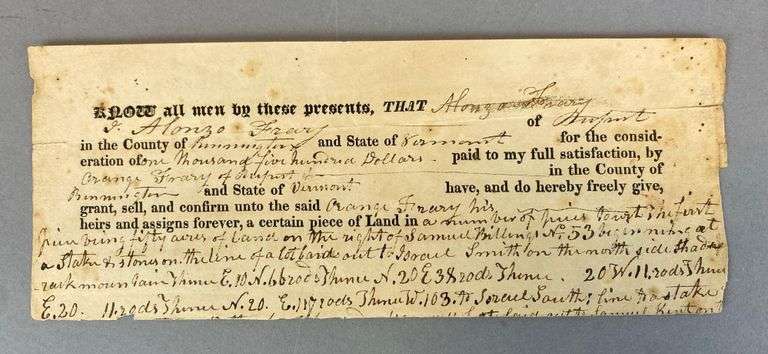 KNOW all men by these presents, THAT Alonzo Frary
I Alonzo Frary of Rupert
in the County of Bennington and State of Vermont for the consid-
eration of one Thousand five hundred Dollars paid to my full satisfaction, by
Orange Frary of Rupert in the County of
Bennington and State of Vermont have, and do hereby freely give,
grant, sell, and confirm unto the said Orange Frary his
heirs and assigns forever, a certain piece of Land in a number of pieces to wit The first
piece being fifty acres of land on the right of Samuel Billings No. 53 beginning at
a Stake & stones on the line of a lot laid out to Israel Smith on the north side
mountain Thence E. 10 N. 66 rods Thence N. 20 E 38 rods Thence 20 W. 11. rods Thence
E. 20. 11. rods Thence N. 20. E. 117 rods Thence W. 103. to Israel South line to a stake
laid out to Samuel